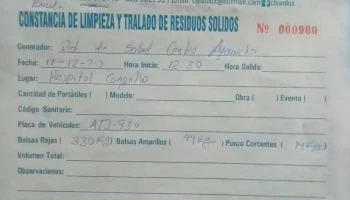 CONSTANCIA DE LIMPIEZA Y TRALADO DE RESIDUOS SOLIDOS
Nº 000900
Generador: Red de Salud Centro Ayacucho
Fecha: 17-12-20 Hora Inicio: 12:30 Hora Salida:
Lugar: Hospital Cangallo
Cantidad de Portátiles ( ) Modelo: Obra ( ) Evento ( )
Código Sanitario:
Placa de Vehículos: ATJ-930
Bolsas Rojas ( 330Kg ) Bolsas Amarillos ( 44Kg ) Punza Cortantes ( 14Kg )
Volumen Total:
Observaciones: